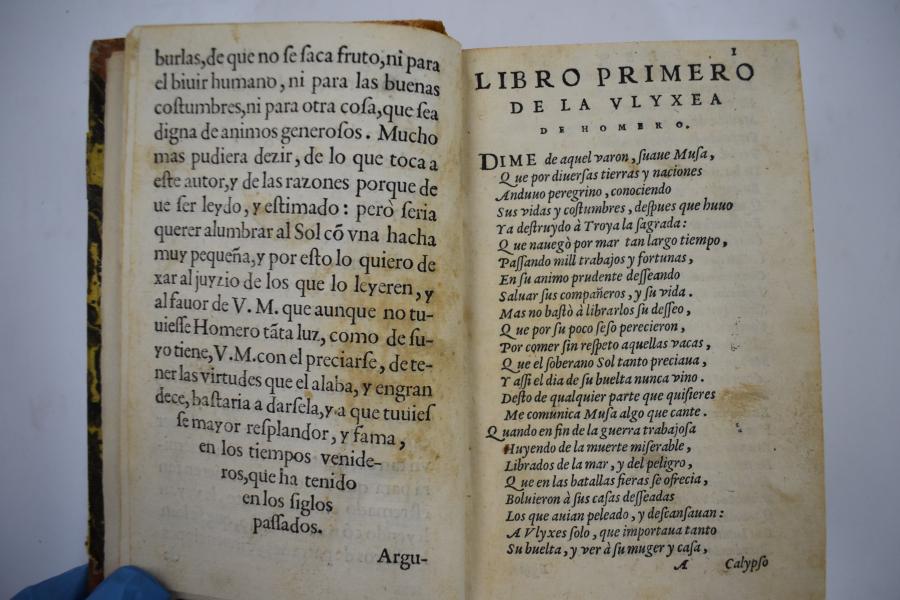 burlas,de que no ſe ſaca fruto,ni para
el biuir humano, ni para las buenas
coſtumbres,ni para otra coſa,que ſea
digna de animos generoſos. Mucho
mas pudiera dezir, de lo que toca a
eſte autor,y de las razones porque de
ue ſer leydo, y eſtimado: però ſeria
querer alumbrar al Sol cõ vna hacha
muy pequeña,y por eſto lo quiero de
xar al juyzio de los que lo leyeren, y
al fauor de V. M. que aunque no tu-
uieſſe Homero tãta luz, como de ſu-
yo tiene,V.M.con el preciarſe, de te-
ner las virtudes que el alaba, y engran
dece, baſtaria a darſela,y a que tuuieſ
ſe mayor reſplandor, y fama,
en los tiempos venide-
ros,que ha tenido
en los ſiglos
paſſados.
Argu-
1
LIBRO PRIMERO
DE LA VLYXEA
DE HOMERO.
DIME de aquel varon, ſuaue Muſa,
Que por diuerſas tierras y naciones
Anduuo peregrino, conociendo
Sus vidas y coſtumbres, deſpues que huuo
Ya deſtruydo à Troya la ſagrada:
Que nauegò por mar tan largo tiempo,
Paſſando mill trabajos y fortunas,
En ſu animo prudente deſſeando
Saluar ſus compañeros, y ſu vida.
Mas no baſtò à librarlos ſu deſſeo,
Que por ſu poco ſeſo perecieron,
Por comer ſin reſpeto aquellas vacas,
Que el ſoberano Sol tanto preciaua,
Y aſſi el dia de ſu buelta nunca vino.
Deſto de qualquier parte que quiſieres
Me comunica Muſa algo que cante.
Quando en fin de la guerra trabajoſa
Huyendo de la muerte miſerable,
Librados de la mar, y del peligro,
Que en las batallas fieras ſe ofrecia,
Boluieron à ſus caſas deſſeadas
Los que auian peleado, y deſcanſauan:
A Vlyxes ſolo, que importaua tanto
Su buelta, y ver à ſu muger y caſa,
A Calypſo